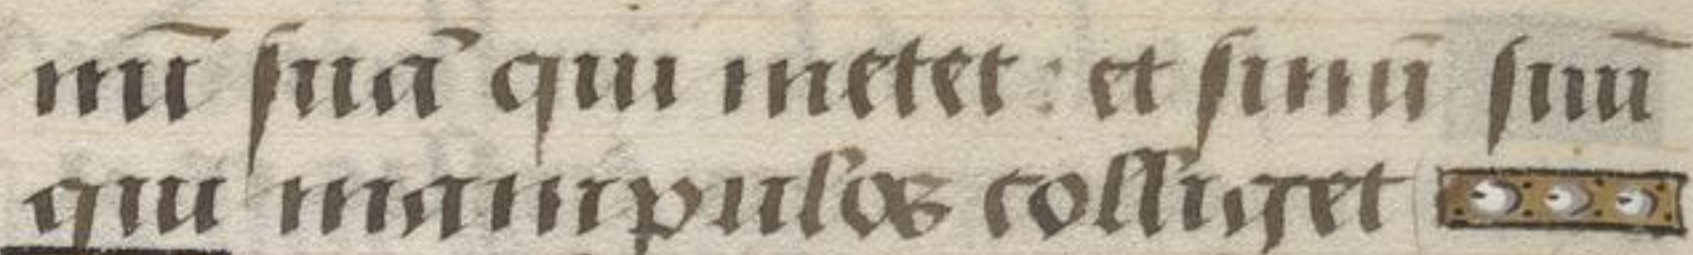 nū ſuā qui metet : et ſinū ſuū
qui manipulos colliget